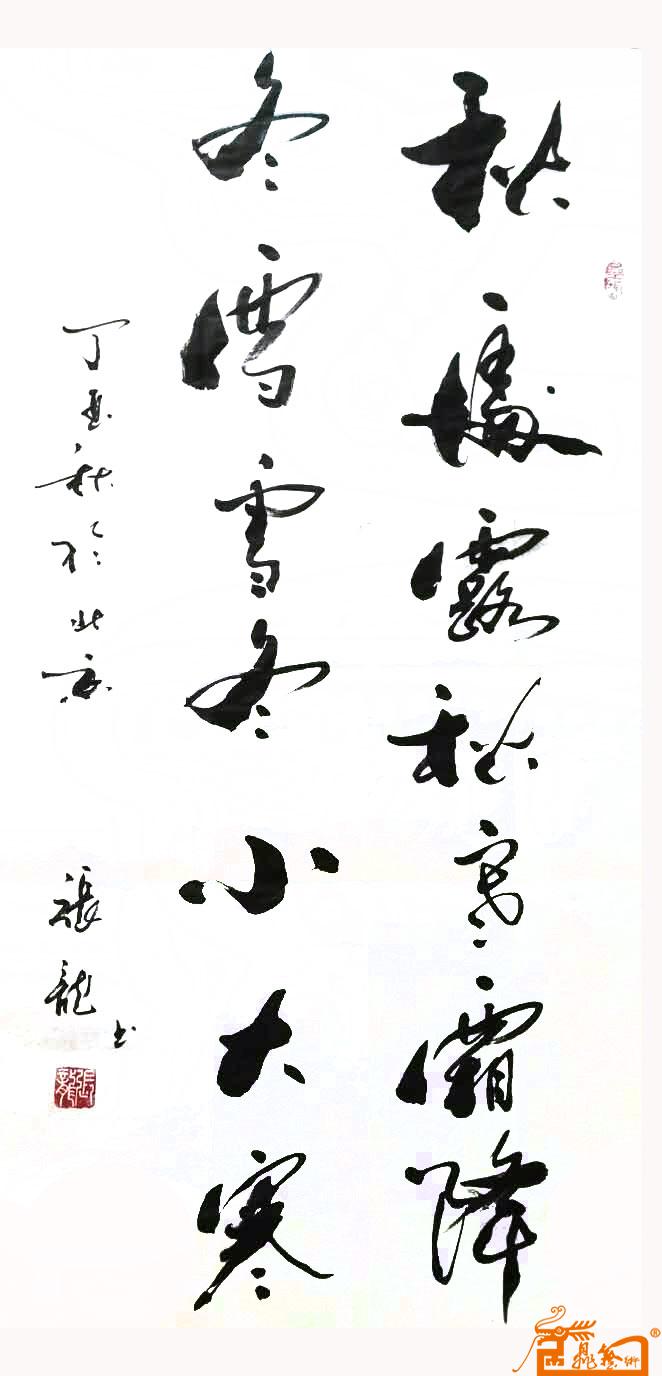 秋處露秋寒霜降
冬雪雪冬小大寒
丁酉秋於北京 張龍书
張龍